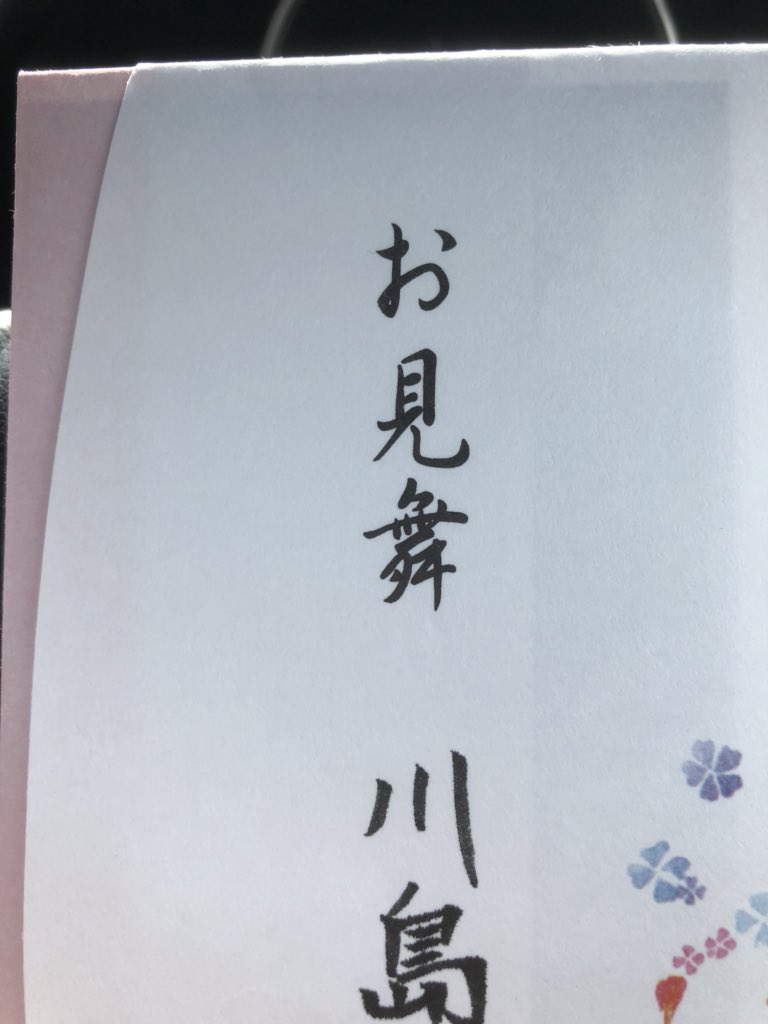 お見舞
川島